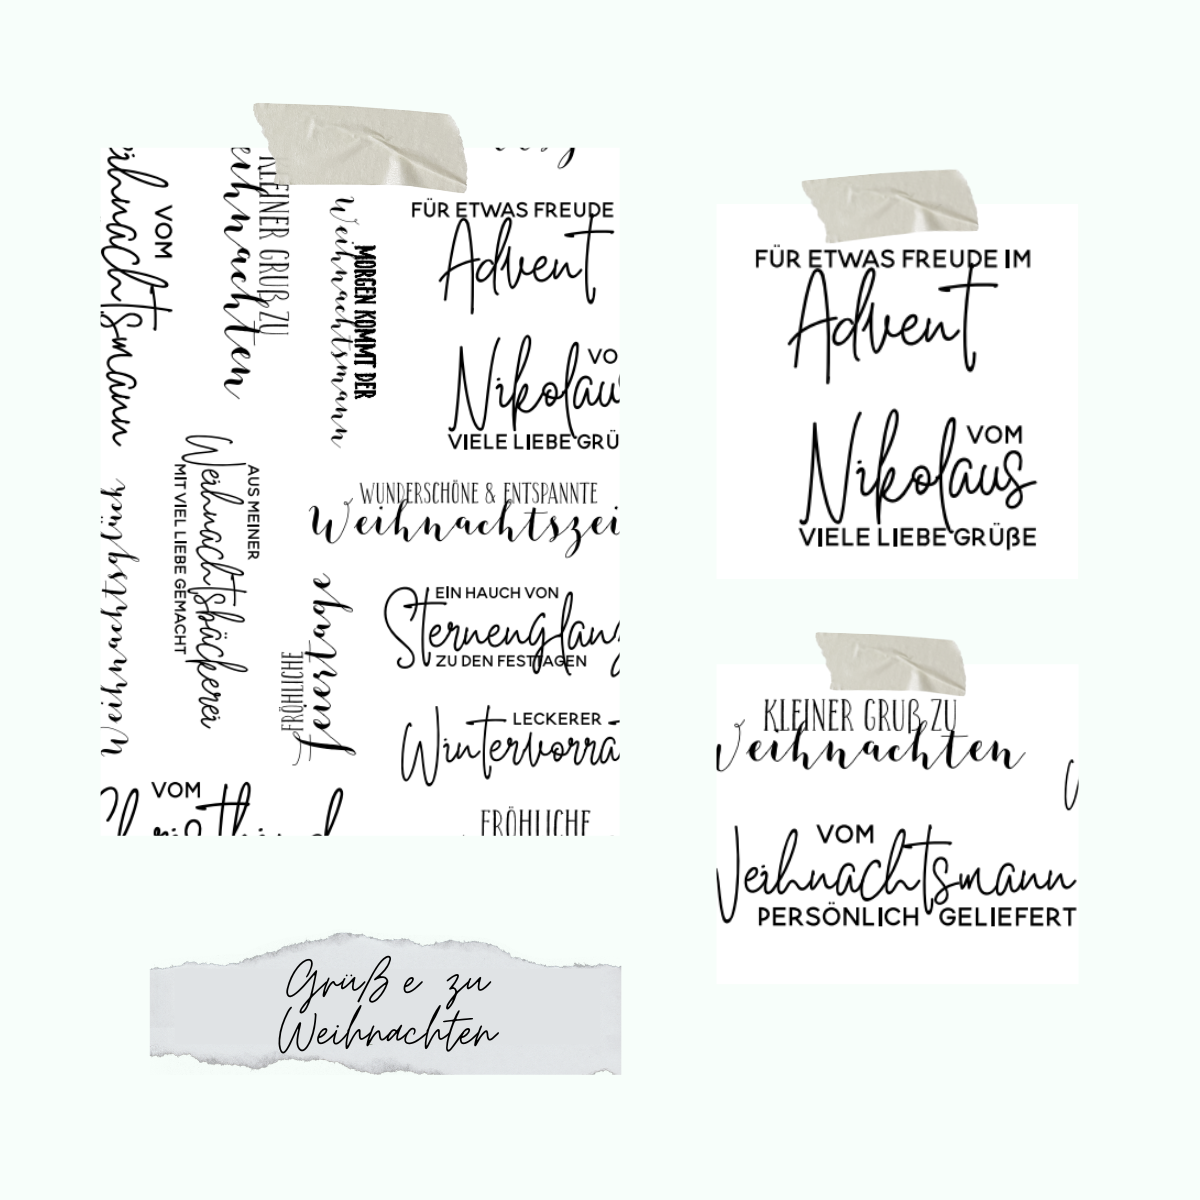 VOM
eihnachtsmann
KLEINER GRUß ZU
eihnachten
MORGEN KOMMT DER
Weihnachtsmann
FÜR ETWAS FREUDE
Advent
VO
Nikolau
VIELE LIEBE GRÜ
AUS MEINER
Weihnachtsbäckerei
MIT VIEL LIEBE GEMACHT
WUNDERSCHÖNE & ENTSPANNTE
Weihnachtszei
EIN HAUCH VON
Sternenglanz
ZU DEN FESTTAGEN
FRÖHLICHE
LECKERER
Wintervorra
VOM
FRÖHLICHE
FÜR ETWAS FREUDE IM
Advent
VOM
Nikolaus
VIELE LIEBE GRÜßE
KLEINER GRUß ZU
Weihnachten
VOM
Weihnachtsmann
PERSÖNLICH GELIEFERT
Grüße zu
Weihnachten